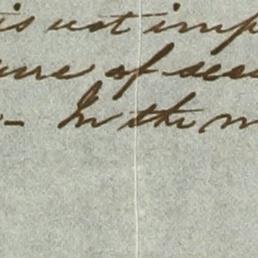 is not imp
ure of see
- In the m